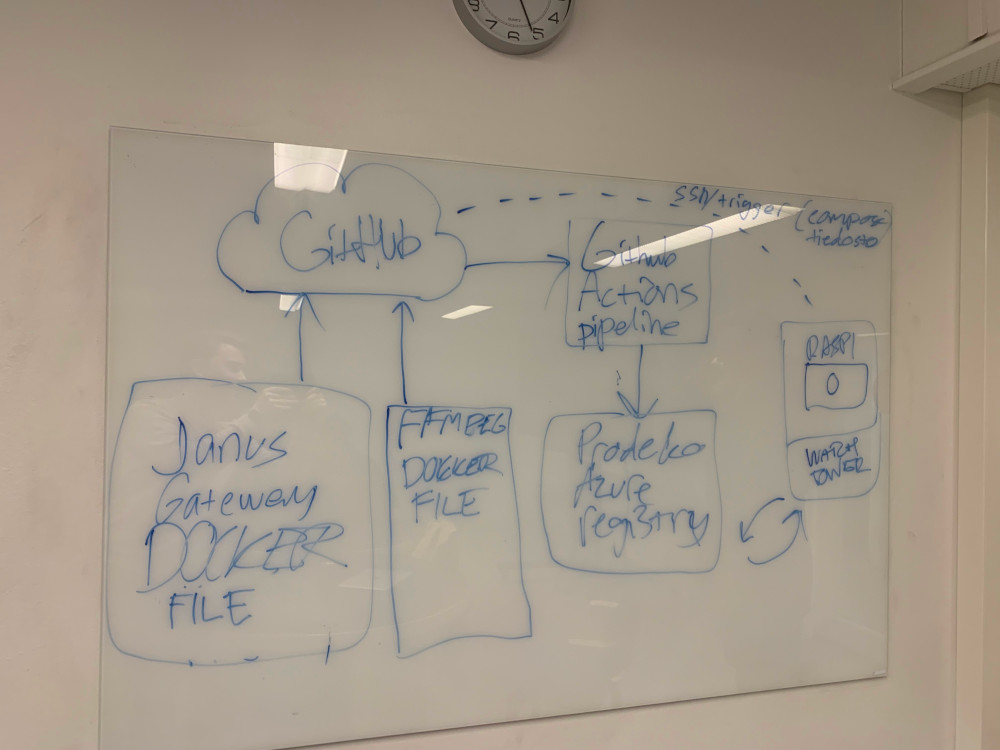 8 7 6 5 4
GitHub
SSH/trigger (compose
tiedosto
Github
Actions
pipeline
RASPI
O
WATCH
TOWER
Janus
Gateway
DOCKER
FILE
FFMPEG
DOCKER
FILE
Prodeko
Azure
registry